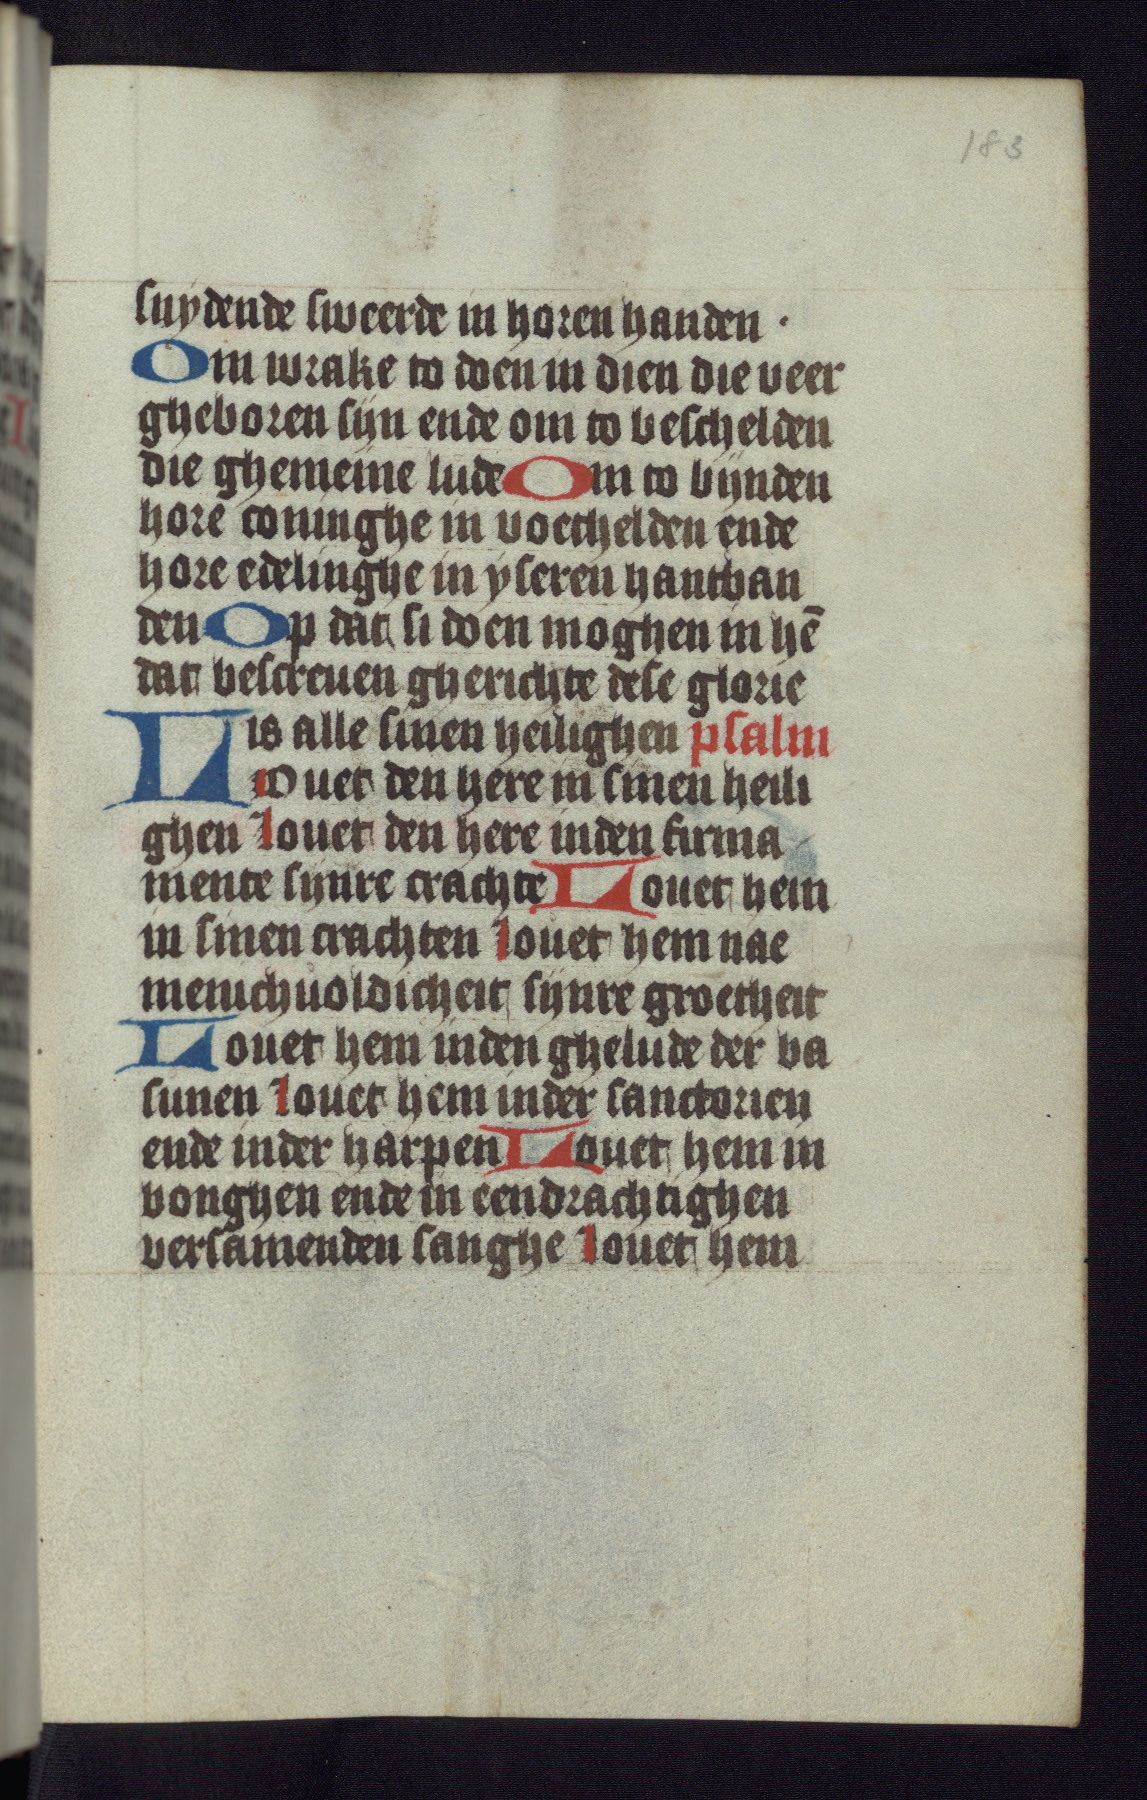 183
snydende sweerde in horen handen ·
Om wrake to doen in dien die veer
gheboren sijn ende om to beschelden
die ghemeine lude Om to bijnden
hore coninghe in voethelden ende
hore edelinghe in yseren hantban
den Op dat si doen moghen in hē
dat bescreuen gherichte dese glorie
is alle sinen heilighen psalm
Louet den here in sinen heili
ghen louet den here inden firma
mente sijnre crachte Louet hem
in sinen crachten louet hem nae
menichuoldicheit sijnre groetheit
Louet hem inden ghelude der ba
sunen louet hem inder sanctorien
ende inder harpen Louet hem in
bonghen ende in eendrachtighen
versamenden sanghe louet hem